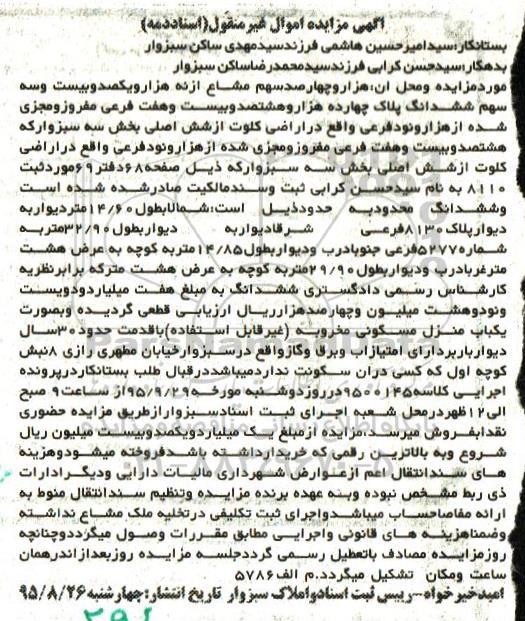 آگهی مزایده اموال غیرمنقول(اسنادذمه)
بستانکار:سیدامیرحسین هاشمی فرزندسیدمهدی ساکن سبزوار
بدهکار:سیدحسن کرابی فرزندسیدمحمدرضاساکن سبزوار
موردمزایده ومحل ان:هزاروچهارصدسهم مشاع ازنه هزارویکصدوبیست وسه
سهم ششدانگ پلاک چهارده هزاروهشتصدوبیست وهفت فرعی مفروزومجزی
شده ازهزارونودفرعی واقع دراراضی کلوت ازشش اصلی بخش سه سبزوارکه
هشتصدوبیست وهفت فرعی مفروزومجزی شده ازهزارونودفرعی واقع دراراضی
کلوت ازشش اصلی بخش سه سبزوارکه ذیل صفحه۶۸دفتر۶۹موردثبت
۸۱۱۰ به نام سیدحسن کرابی ثبت وسندمالکیت صادرشده شده است
وششدانگ محدودبه حدودذیل است:شمالابطول۱۴/۶۰متردیواربه
دیوارپلاک۸۱۳۰فرعی شرقادیواربه دیواربطول۳۲/۹۰متربه
شماره۵۲۷۷فرعی جنوبادرب ودیواربطول۱۴/۸۵متربه کوچه به عرض هشت
مترغربادرب ودیواربطول۲۹/۹۰متربه کوچه به عرض هشت مترکه برابرنظریه
کارشناس رسمی دادگستری ششدانگ به مبلغ هفت میلیاردودویست
ونودوهشت میلیون وچهارصدهزارریال ارزیابی قطعی گردیده وبصورت
یکباب منزل مسکونی مخروبه (غیرقابل استفاده)باقدمت حدود۳۰سال
دیوارباربردارای امتیازاب وبرق وگازواقع درسبزوارخیابان مطهری رازی ۸نبش
کوچه اول که کسی دران سکونت نداردمیباشددرقبال طلب بستانکاردرپرونده
اجرایی کلاسه۹۵۰۰۱۴۵درروزدوشنبه مورخه۹۵/۹/۲۹از ساعت۹ صبح
الی۱۲ظهردرمحل شعبه اجرای ثبت اسنادسبزوارازطریق مزایده حضوری
نقدابفروش میرسد.مزایده ازمبلغ یک میلیاردویکصدوبیست میلیون ریال
شروع وبه بالاترین رقمی که خریدارداشته باشدفروخته میشودوهزینه
های سندانتقال اعم ازعوارض شهرداری مالیات دارایی ودیگرادارات
ذی ربط مشخص نبوده وبنه عهده برنده مزایده وتنظیم سندانتقال منوط به
ارائه مفاصاحساب میباشدواجرای ثبت تکلیفی درتخلیه ملک مشاع نداشته
وضمناهزینه های قانونی واجرایی مطابق مقررات وصول میگرددوچنانچه
روزمزایده مصادف باتعطیل رسمی گرددجلسه مزایده روزبعدازاندرهمان
ساعت ومکان تشکیل میگردد.م الف۵۷۸۶
امیدخیرخواه--رییس ثبت اسنادواملاک سبزوار تاریخ انتشار:چهارشنبه۹۵/۸/۲۶